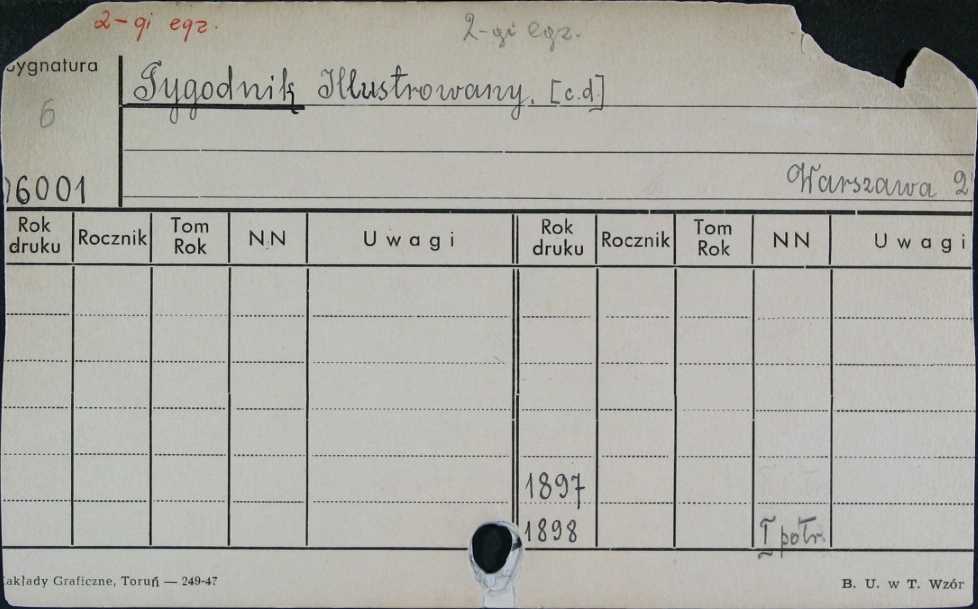 2-gi egz. 2-gi egz.
Sygnatura
Tygodnik Illustrowany. [c.d.]
6
06001
Warszawa 2
Rok druku Rocznik Tom Rok NN Uwagi Rok druku Rocznik Tom Rok NN Uwagi
1897
1898 I półr.
Zakłady Graficzne, Toruń — 249-47 B. U. w T. Wzór